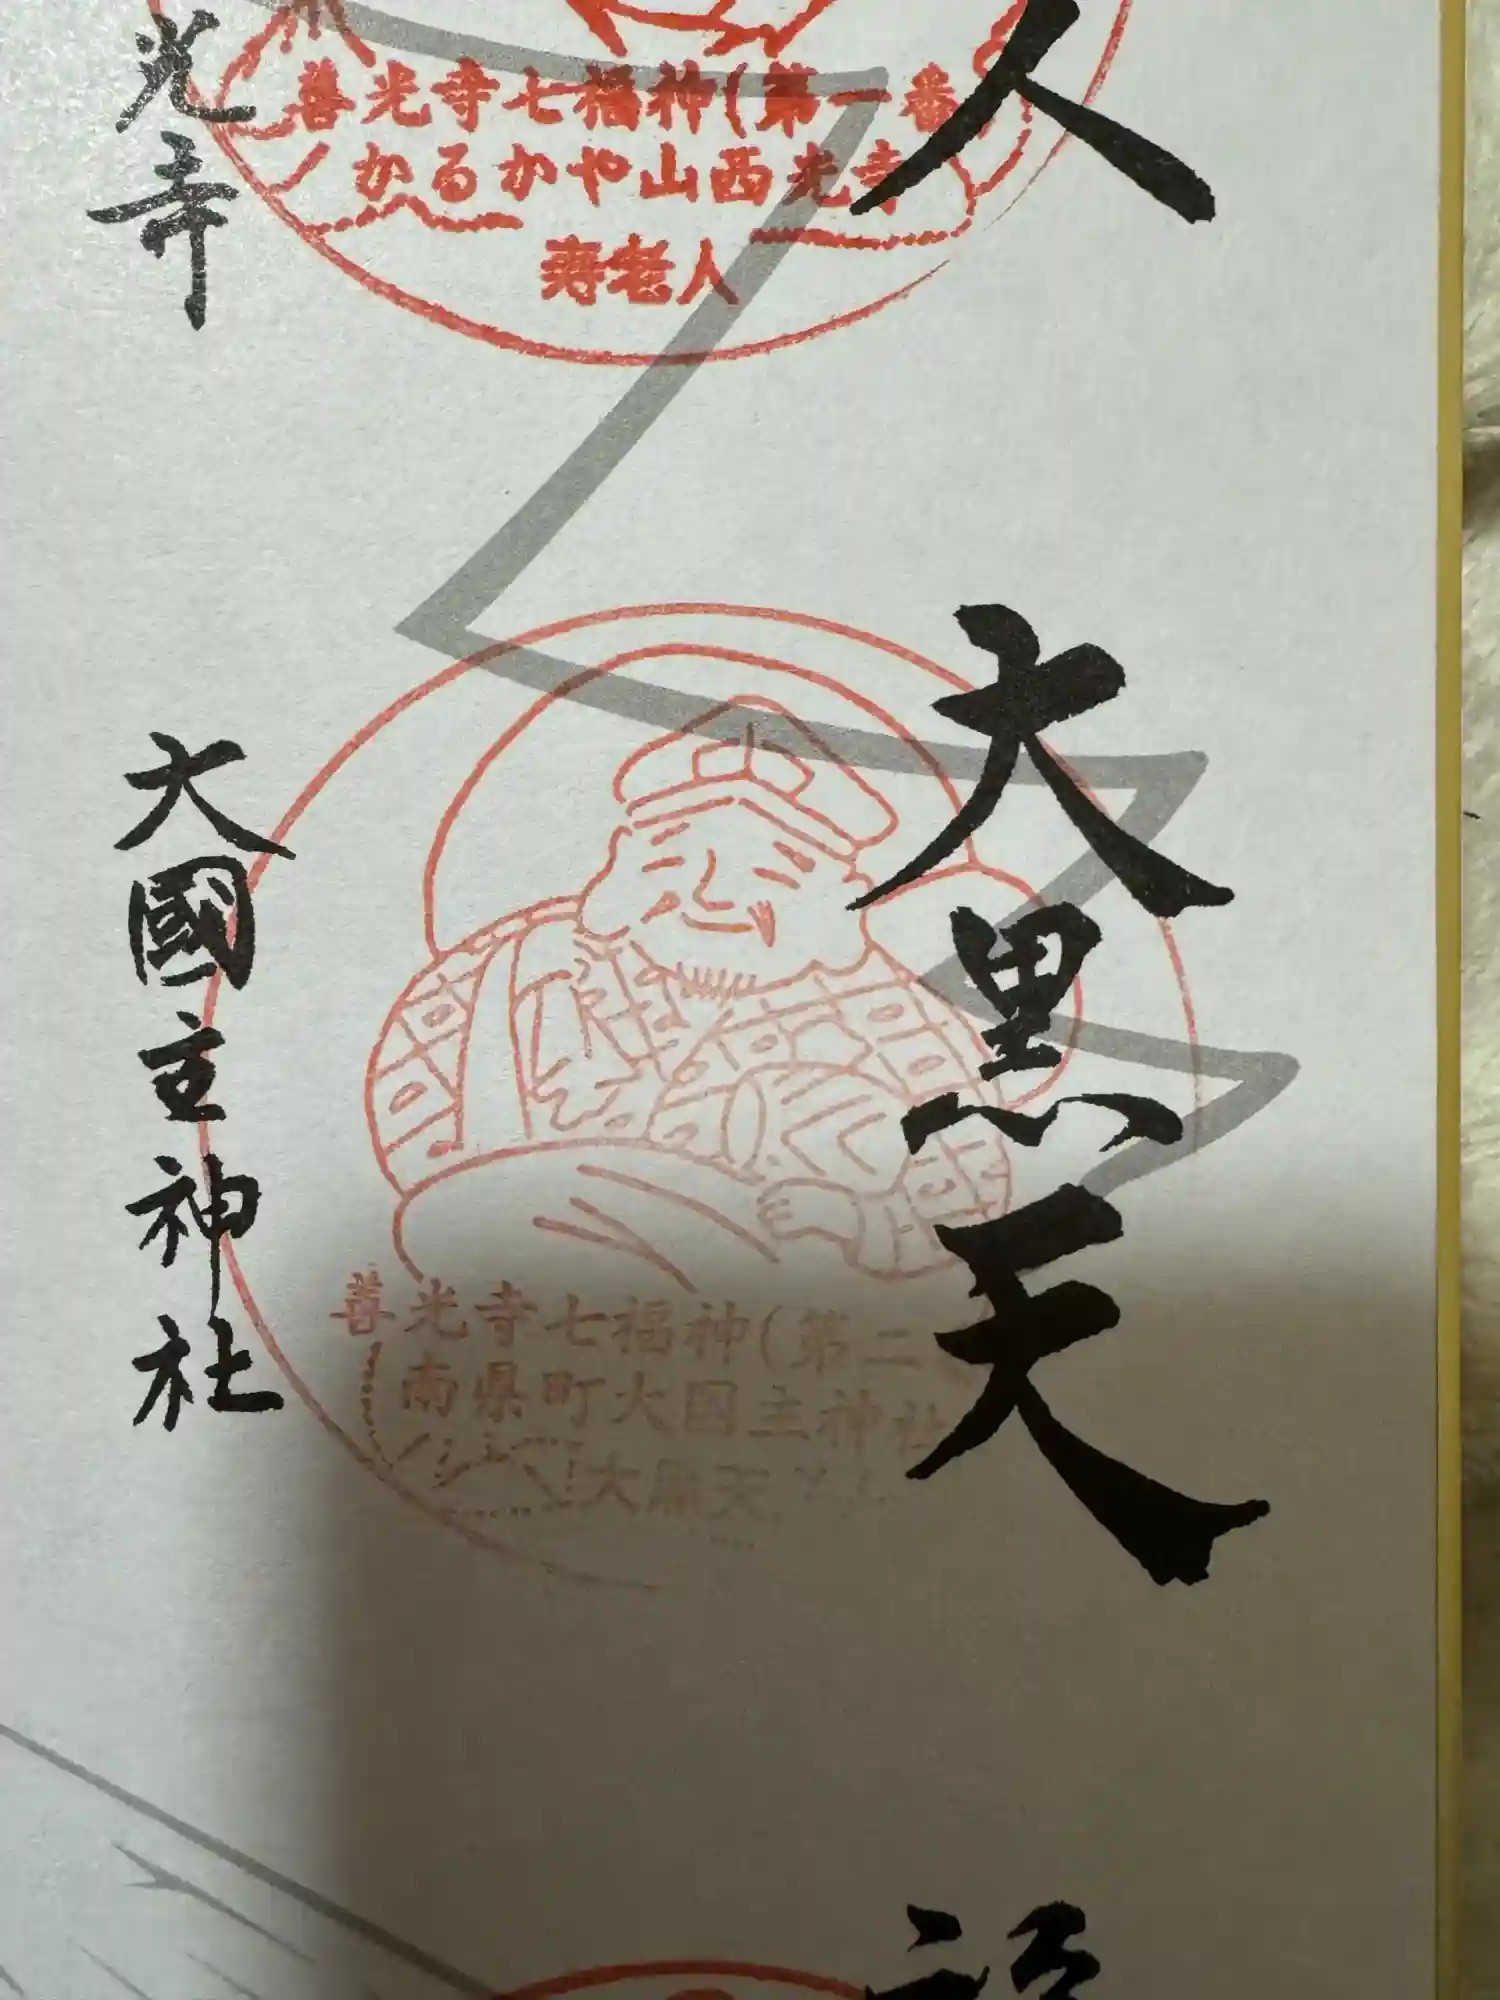 人
善光寺七福神(第一番
かるかや山西光寺
寿老人
光寺
大黒天
善光寺七福神(第二
南県町大国主神社
大黒天
大國主神社
福